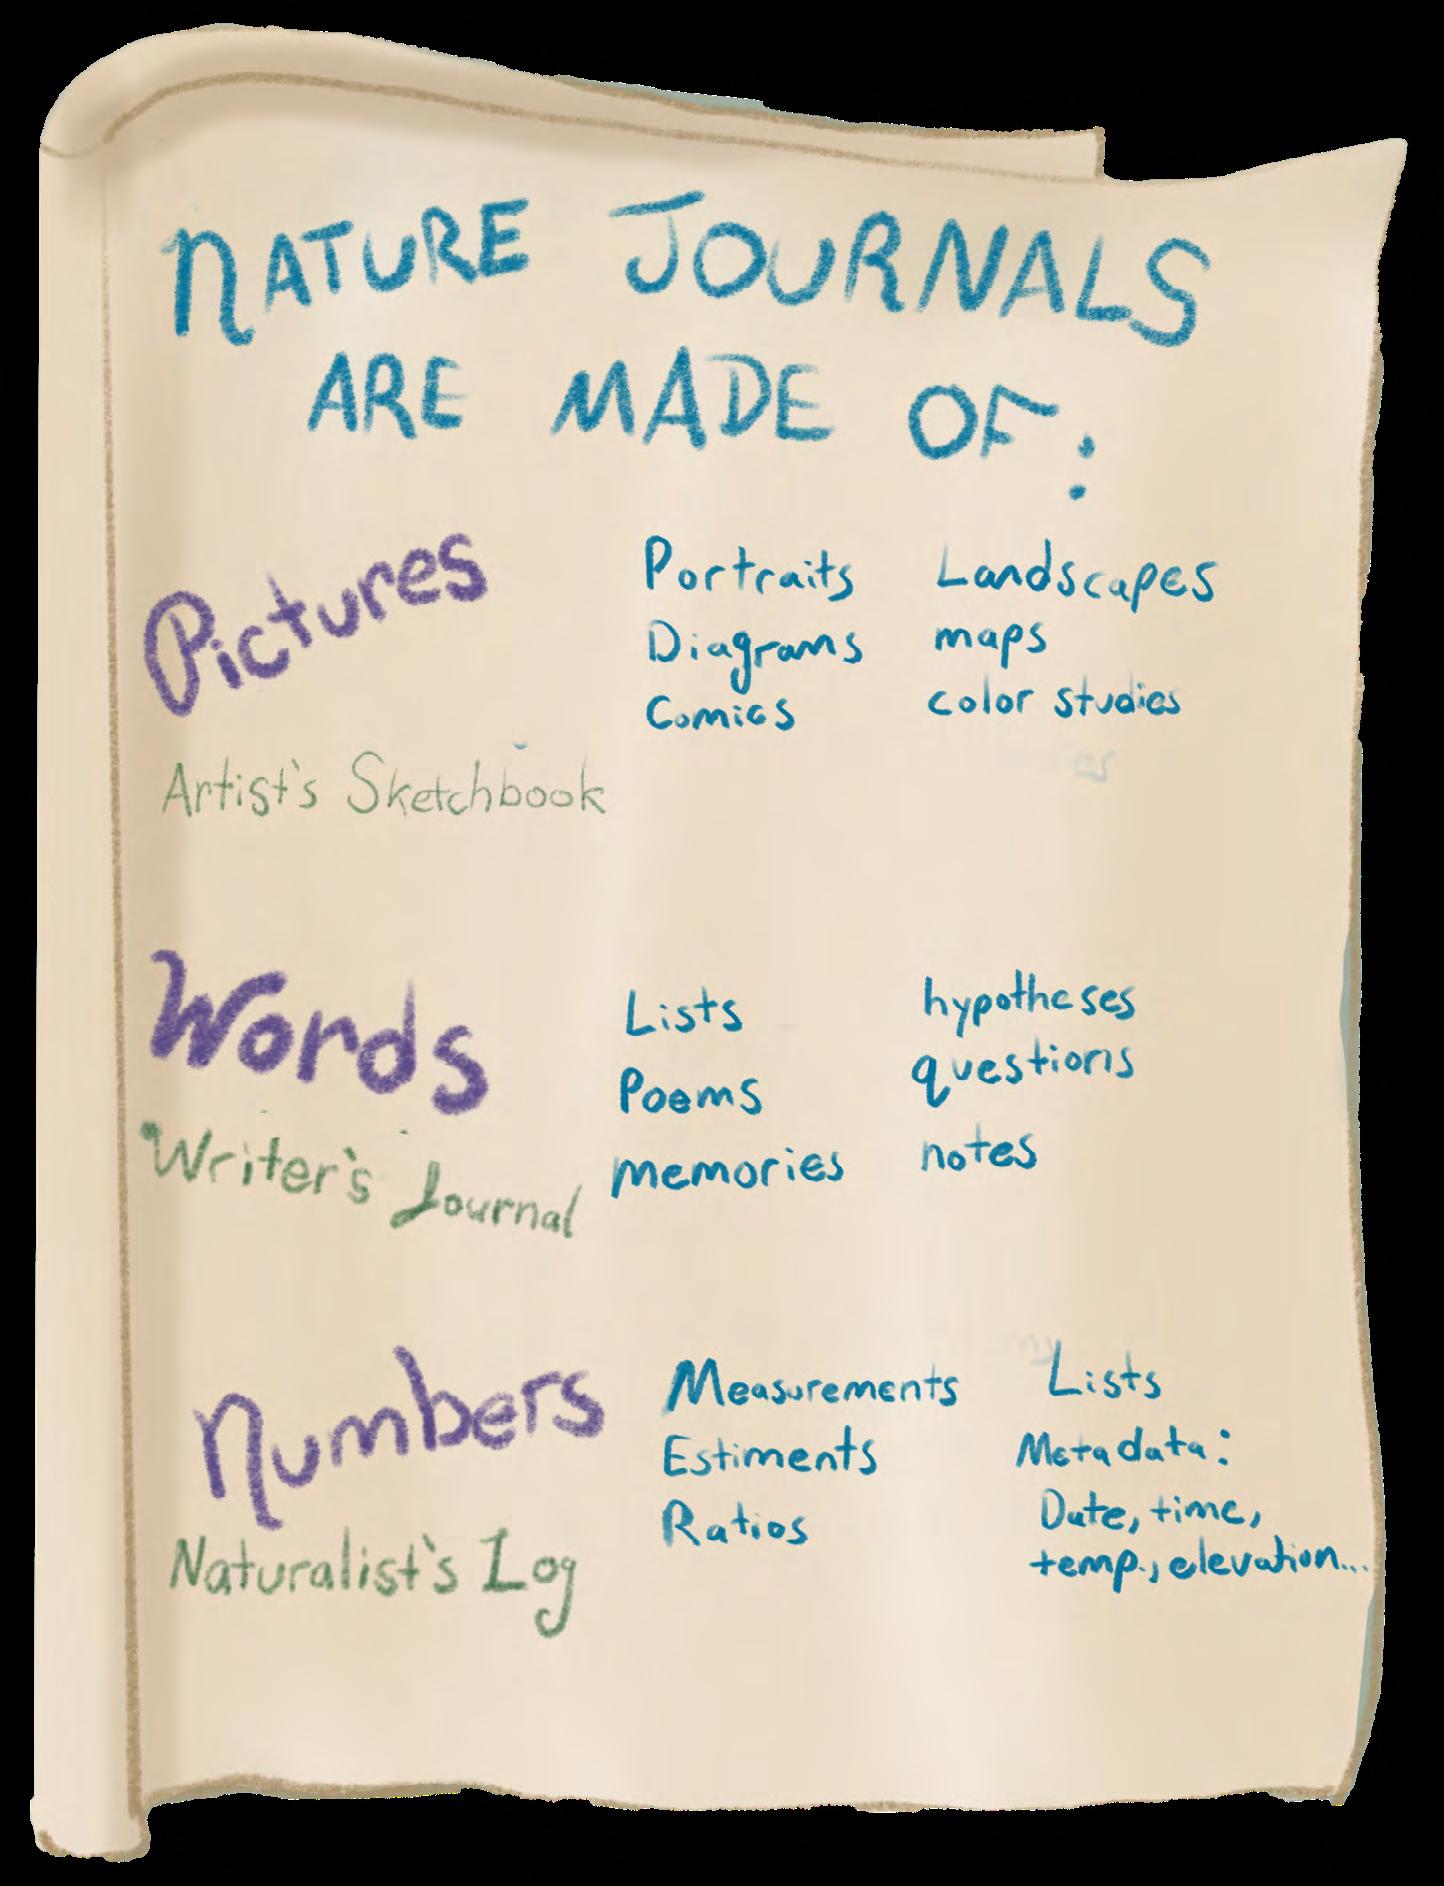 NATURE JOURNALS
ARE MADE OF:
Pictures
Artist's Sketchbook
Portraits Landscapes
Diagrams maps
Comics color studies
Words
Writer's Journal
Lists hypotheses
Poems questions
memories notes
Numbers
Naturalist's Log
Measurements Lists
Estiments Metadata:
Ratios Date, time,
temp., elevation...